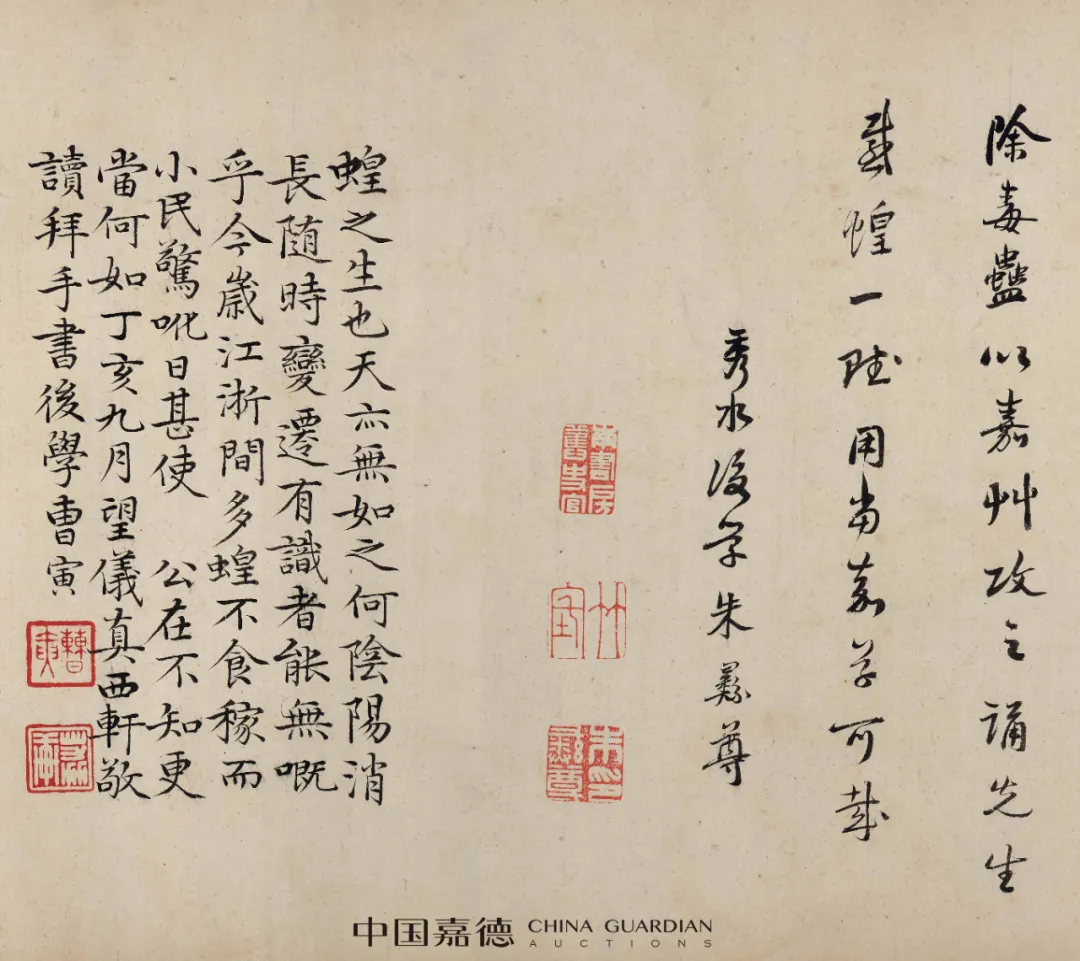 除毒蠱以嘉艸攻之誦先生
感蝗一賦用當嘉草可哉
秀水後學朱彝尊
南書房舊史官
竹垞
朱彝尊印
蝗之生也天亦無如之何陰陽消
長隨時變遷有識者能無嘅
乎今歲江浙間多蝗不食稼而
小民驚吪日甚使 公在不知更
當何如丁亥九月望儀真西軒敬
讀拜手書後學曹寅
曹寅
荔軒
中国嘉德 CHINA GUARDIAN
AUCTIONS